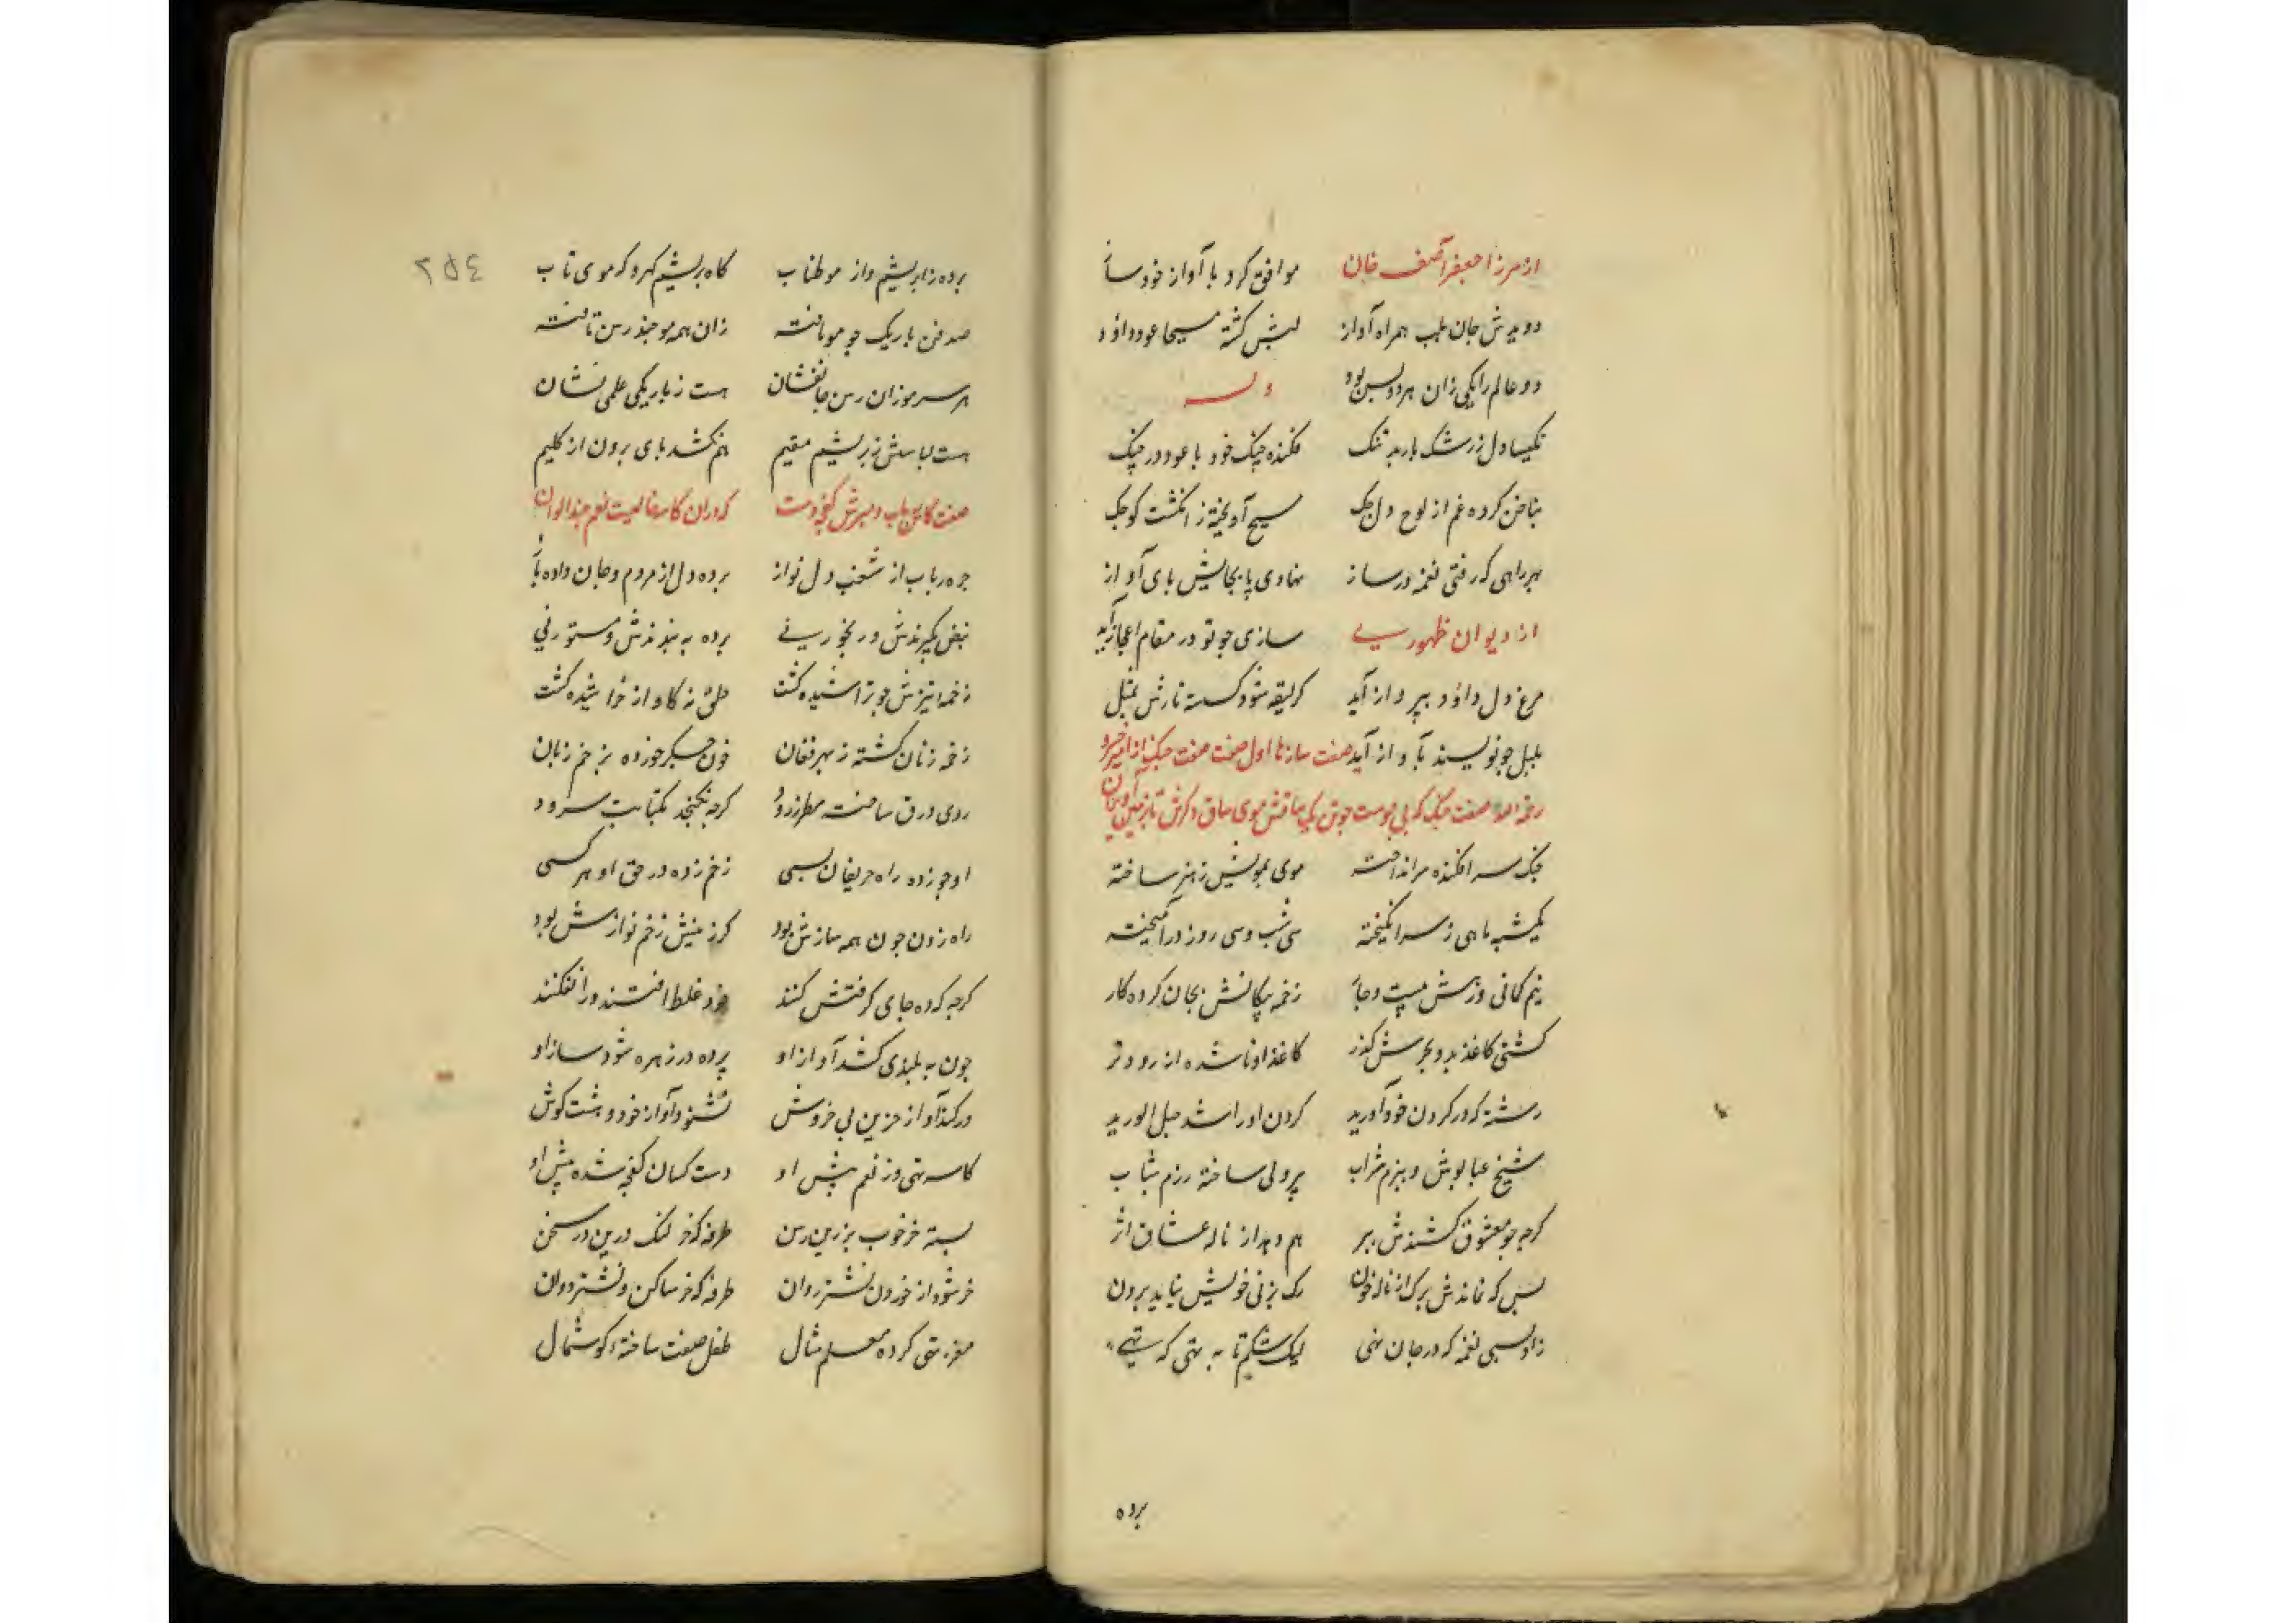 از میرزا جعفر آصف خان موافق کرد با آواز خود ساز
دویدش جان بلب همراه آواز لبش کشته مسیحا عود داؤد
دو عالم را یکی زان هر دو بس بود وله
نکیسا دل ز رشک باربد تنک فکنده چنک خود با عود در چنک
بناخن کرده غم از لوح دل حک مسیح آویخته ز انکشت کوچک
بهر راهی که رفتی نغمه در ساز نهادی پا بجایش بای آواز
از دیوان ظهوری سازی جو تو در مقام اعجاز آید
مرغ دل داؤد ببرواز آید کر لیقه شود کسسته تارش بمثل
بلبل جو نویسند بآواز آید صفت سازها اول صفت چنک از امیر خسرو
صفت چنک که بی موست جوش یک ساقش موی ساق دکرش تا بزمین
جنک سرافکنده سرانداخته موی بمویش ز هنر ساخته
یکشبه ماهی ز سر انکیخته سی شب و سی روز در آمیخته
نیم کمانی و زهش بیست و چار زخمه بیکانش بجان کرده کار
کشتی کاغذ بدو بحرش کذر کاغذ او ناشده از رود تر
رشته که در کردن خود آورید کردن او را شده حبل الورید
شیخ عبا بوش و ببزم شراب پرولی ساخته رزم شباب
کرجه جو معشوق کشندش ببر هم دهد از ناله عشاق اثر
بس که نماندش برک از ناله خون رک بزنی خویش نیاید برون
زاو بسی نغمه که در جان نهی لیک شکم تا به تهی که تهی
برده
۲۵٤
برده ز ابریشم و از مو طناب کاه بریشم کرو که موی تاب
صد فن باریک جو مو بافته زان همه مو جند رسن تافته
هر سر مو زان رسن جانفشان هست ز باریکی علمی نشان
هست لباسش ز بریشم مقیم هم نکشد بای برون از کلیم
صفت کاسه رباب و برش کفچه دست که در آن کاسه خالیست نعم چند الوان
جره رباب از شغب دل نواز برده دل از مردم و جان داده باز
نبض بکیرندش و رنجور نی برده به بندندش و مستور نی
زخمه تیزش جو تراشیده کشت حلق نه کاواز خراشیده کشت
زخمه زنان کشته ز بهر فغان خون جکر خورده بزخم زبان
روی ورق ساخته مسطر ز رود کرجه نکنجد بکتابت سرود
او جو زده راه حریفان بسی زخم زده در حق او هر کسی
راه زدن جون همه سازش بود کرزنیش زخم نوازش بود
کرجه که ده جای کرفتش کنند خود غلط افتند و را نفکنند
جون به بلندی کشد آواز او پرده در زهره شود ساز او
ور کند آواز حزین بی خروش نشنود آواز خود و هشت کوش
کاسه تهی وز نعم پیش او دست کسان کفچه شده پیش او
بسته خر خوب بزین رسن طرفه که خر لنک درین ره سخن
خر شود از خوردن نشتر روان طرفه که خر ساکن و نشتر دوان
مغز تهی کرده معلم مثال طفل صفت ساخته کوشمال